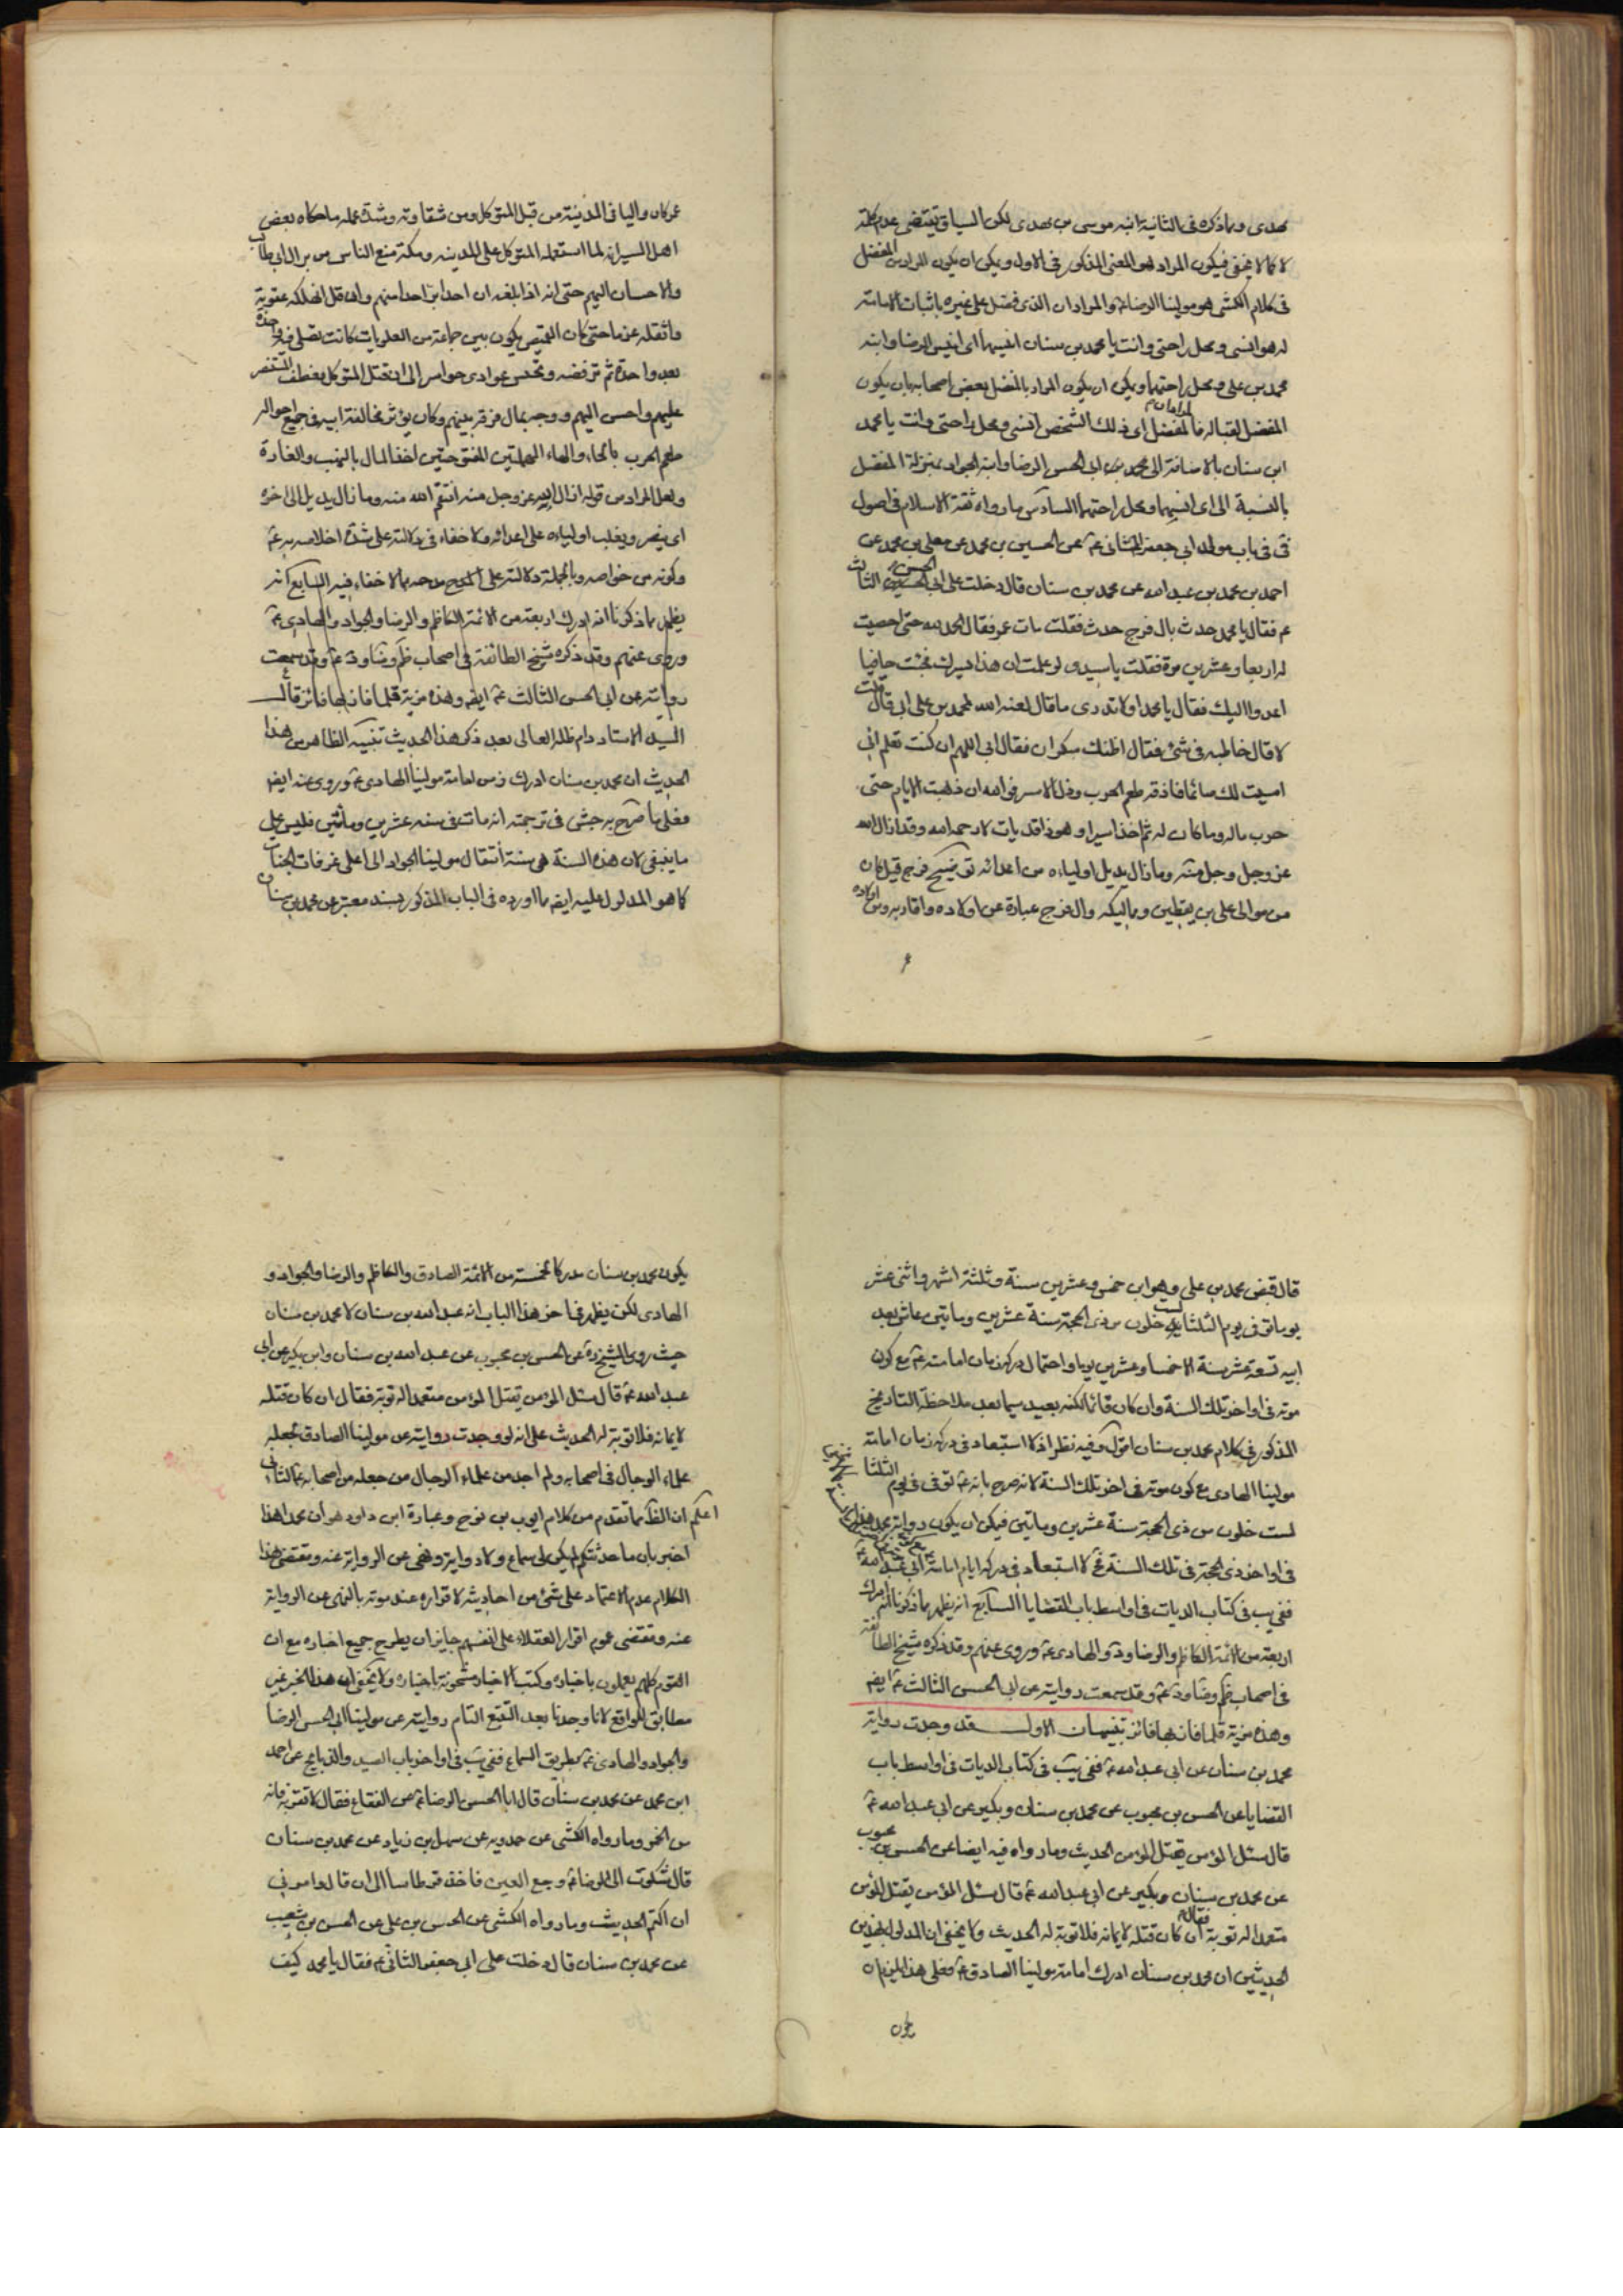 مهدى وما ذكره فى الثانية ابنه موسى بن مهدى لكن السياق يقتضى عدم كلمة
لا كما لا يخفى فيكون المراد هو المعنى المذكور فى الاول ويمكن ان يكون المراد من المفضل
فى كلام الكشى هو مولينا الرضا ع والمراد ان الذى فضل على غيره باثبات الامامة
له هو انسى ومحل راحتى وانت يا محمد بن سنان انسهما اى انيس الرضا وابنه
محمد بن على ومحل راحتهما ويمكن ان يكون المراد بالمفضل بعض اصحابه بان يكون
المفضل لقبا له فالمفضل اى ذلك الشخص انسى ومحل راحتى وانت يا محمد
ابن سنان بالاضافة الى محمد بن ابى الحسن الرضا وابنه الجواد بمنزلة المفضل
بالنسبة الى اى انسهما ومحل راحتهما السادس ما رواه ثقة الاسلام فى اصول
فى فى باب مولد ابى جعفر الثانى ع عن الحسين بن محمد عن معلى بن محمد عن
احمد بن محمد بن عبد الله عن محمد بن سنان قال دخلت على ابى الحسن الثالث
ع فقال يا محمد حدث بال فرج حدث فقلت مات عمر فقال الحمد لله حتى احصيت
له اربعا وعشرين مرة فقلت يا سيدى لو علمت ان هذا يسرك لجئت حافيا
اعدوا اليك فقال يا محمد اولا تدرى ما قال لعنه الله لمحمد بن على ابى قال قلت
لا قال خاطبه فى شئ فقال اظنك سكران فقال ابى اللهم ان كنت تعلم انى
امسيت لك صائما فاذقه طعم الحرب وذل الاسر فو الله ان ذهبت الايام حتى
حرب ماله وما كان له ثم اخذ اسيرا وهو ذا قد مات لا رحمه الله وقد ادال الله
عز وجل منه وما زال يديل اولياءه من اعدائه توضيح فرج قيل كان
من موالى على بن يقطين ومماليكه وال فرج عبارة عن اولاده واقاربه ومن اولاده
عمر كان واليا فى المدينة من قبل المتوكل ومن شقاوته وشدة عمله ما حكاه بعض
اهل السير انه لما استعمله المتوكل على المدينه ومكة منع الناس من بر ال ابى طالب
والاحسان اليهم حتى انه اذا بلغه ان احدا بر احدا منهم وان قل انهكه عقوبة
واثقله غرما حتى كان القميص يكون بين جماعة من العلويات كانت تصلى فيه واحدة
بعد واحدة ثم ترفعنه وتجلس عوارى حواسر الى ان قتل المتوكل فعطف المنتصر
عليهم واحسن اليهم ووجه بمال فرقه بينهم وكان يؤثر مخالفة ابيه فى جميع احواله
طعم الحرب بالحاء والراء المهملتين المفتوحتين اخذ المال بالنهب والغارة
ولعل المراد من قوله ادال الله عز وجل منه انتقم الله منه وما زال يديل الى اخره
اى ينصر ويغلب اولياءه على اعدائه ولا خفاء فى دلالته على شدة اخلاصه به ع
وكونه من خواصه وبالجملة دلالته على المدح مدحه مما لا خفاء فيه السابع انه
يظهر مما ذكرنا انه ادرك اربعة من الائمة الكاظم والرضا والجواد والهادى ع
وروى عنهم وقد ذكره شيخ الطائفة فى اصحاب ظم وضا ود ع وقد سمعت
روايته عن ابى الحسن الثالث ع ايضا وهذه مزية قلما فاز بها فائز قال
السيد الاستاد دام ظله العالى بعد ذكر هذا الحديث تنبيه الظاهر من هذا
الحديث ان محمد بن سنان ادرك زمن امامة مولينا الهادى ع وروى عنه ايضا
فعلى ما صرح به جش فى ترجمته انه مات فى سنه عشرين ومأتين فليس على
ما ينبغى لان هذه السنة هى سنة انتقال مولينا الجواد الى اعلى غرفات الجنان
كما هو المدلول عليه ايضا بما اورده فى الباب المذكور بسند معتبر عن محمد بن سنان
قال قبض محمد بن على وهو ابن خمس وعشرين سنة وثلثة اشهر واثنى عشر
يوما توفى يوم الثلثا لست خلون من ذى الحجة سنة عشرين ومأتين عاش بعد
ابيه تسعة عشر سنة الا خمسا وعشرين يوما واحتمال دركه زمان امامته ع مع كون
موته فى اواخر تلك السنة وان كان قائما لكنه بعيد سيما بعد ملاحظة التاريخ
المذكور فى كلام محمد بن سنان اقول وفيه نظر اذ لا استبعاد فى دركه زمان امامة
مولينا الهادى مع كون موته فى اخر تلك السنة لانه صرح بانه ع توفى فى يوم الثلثا
لست خلون من ذى الحجة سنة عشرين ومأتين فيمكن ان يكون رواية محمد
فى اواخر ذى الحجة فى تلك السنة لا استبعاد فى دركه ايام امامة ابى عبد الله ع
ففى يب فى كتاب الديات فى اواسط باب القضايا السابع انه يظهر مما ذكرنا انه ادرك
اربعة من الائمة الكاظم والرضا ود والهادى ع وروى عنهم وقد ذكره شيخ الطائفة
فى اصحاب ظم وضا ود ع وقد سمعت روايته عن ابى الحسن الثالث ع ايضا
وهذه مزية قلما فاز بها فائز تنبيهان الاول قد وجدت رواية
محمد بن سنان عن ابى عبد الله ع ففى يب فى كتاب الديات فى اواسط باب
القضايا عن الحسن بن محبوب عن محمد بن سنان وبكير عن ابى عبد الله ع
قال سئل المؤمن يقتل المؤمن الحديث وما رواه فيه ايضا عن الحسن بن محبوب
عن محمد بن سنان وبكير عن ابى عبد الله ع قال سئل المؤمن يقتل المؤمن
متعمدا له توبة فقال ان كان قتله لايمانه فلا توبة له الحديث ولا يخفى ان المدلول لهذين
الحديثين ان محمد بن سنان ادرك امامة مولينا الصادق ع فعلى هذا يلزم ان
يكون
يكون محمد بن سنان مدركا لخمسة من الائمة الصادق والكاظم والرضا والجواد و
الهادى لكن يظهر فى اخر هذا الباب انه عبد الله بن سنان لا محمد بن سنان
حيث روى الشيخ ره عن الحسن بن محبوب عن عبد الله بن سنان وابن بكير عن ابى
عبد الله ع قال سئل المؤمن يقتل المؤمن متعمدا له توبة فقال ان كان قتله
لايمانه فلا توبة له الحديث على انه لو وجدت روايته عن مولينا الصادق لجعله
علماء الرجال فى اصحابه ولم اجد من علماء الرجال من جعله من اصحابه ع الثانى
اعلم ان الظ مما تقدم من كلام ايوب بن نوح وعبارة ابن داود هو ان محمدا هذا
اخبر بان ما حدثتكم لم يكن لى سماع ولا رواية ونهى عن الرواية عنه ومقتضى هذا
الكلام عدم الاعتماد على شئ من احاديثه لاقراره عند موته بالنهى عن الرواية
عنه ومقتضى عموم اقرار العقلاء على انفسهم جايز ان يطرح جميع اخباره مع ان
القوم كلهم يعملون باخباره وكتب الاخبار مشحونة باخباره ولا يخفى ان هذا الخبر غير
مطابق للواقع لانا وجدنا بعد التتبع التام روايته عن مولينا ابى الحسن الرضا
والجواد والهادى ع بطريق السماع ففى يب فى اواخر باب الصيد والذبايح عن احمد
ابن محمد عن محمد بن سنان قال ابا الحسن الرضا ع عن الفقاع فقال لا تقربه فانه
من الخمر وما رواه الكشى عن حمدويه عن سهل بن زياد عن محمد بن سنان
قال شكوت الى الرضا ع وجع العين فاخذ قرطاسا الى ان قال وامرنى
ان اكتم الحديث وما رواه الكشى عن الحسن بن على عن الحسن بن شعيب
عن محمد بن سنان قال دخلت على ابى جعفر الثانى ع فقال يا محمد كيف